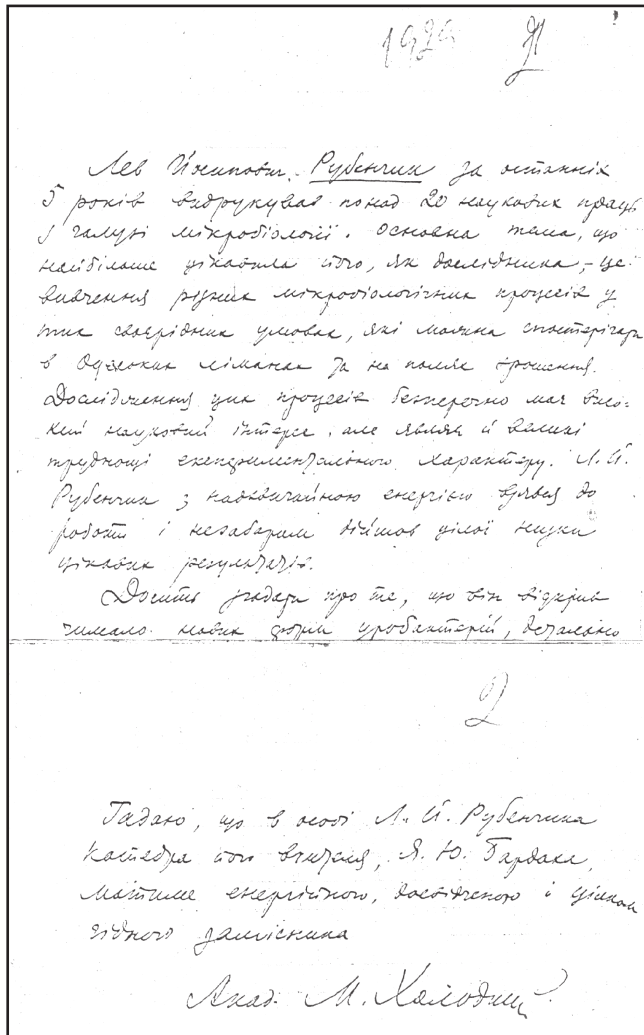 1929
Лев Йосипович Рубенчик за останніх
5 років видрукував понад 20 наукових праць
з галузі мікробіології. Основна тема, що
найбільше цікавила його, як дослідника, – це
вивчення різних мікробіологічних процесів у
тих своєрідних умовах, які можна спостерігати
в Одеських лиманах та на полях зрошення.
Дослідження цих процесів безперечно має висо-
кий науковий інтерес, але являє й великі
труднощі експериментального характеру. Л. Й.
Рубенчик з надзвичайною енергією взявся до
роботи і незабаром дійшов цілої низки
цікавих результатів.
Досить згадати про те, що він відкрив
чимало нових форм уробактерій, детально
2
Гадаю, що в особі Л. Й. Рубенчика
катедра його вчителя, Я. Ю. Бардаха,
матиме енергійного, досвідченого і цілком
гідного замісника
Акад. М. Холодний